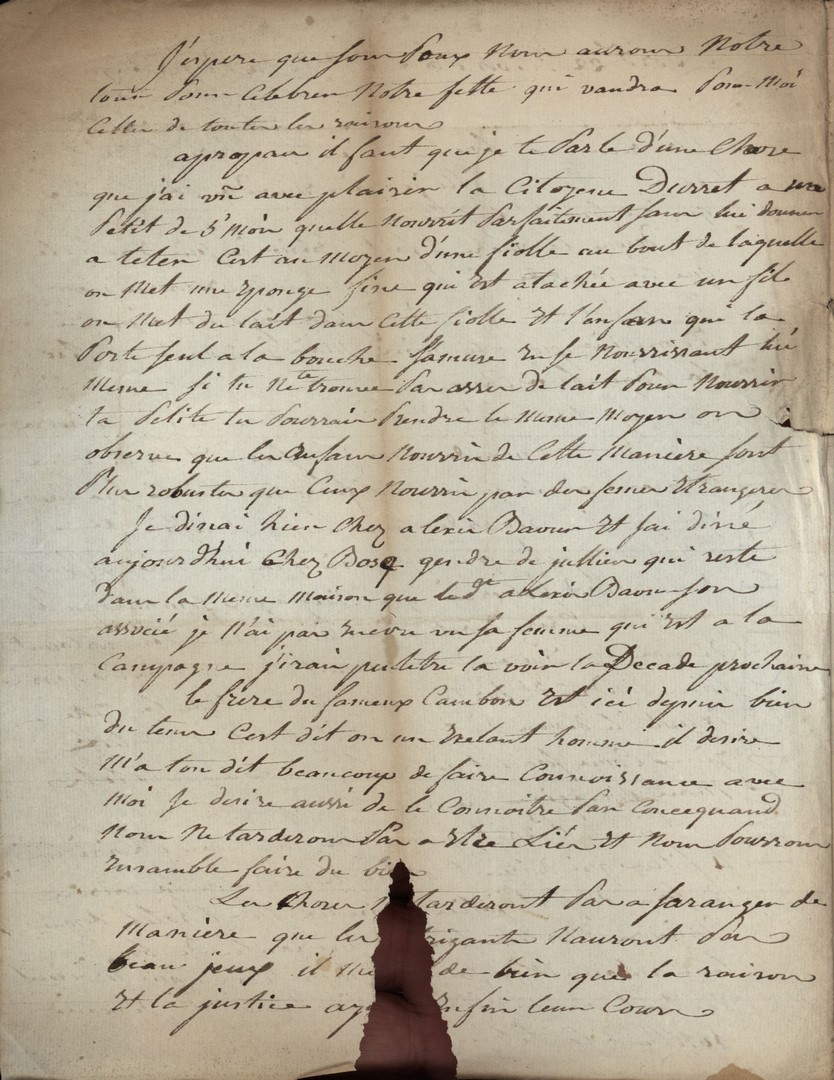 J'espere que sour Peux Nous aurons Notre
tour Pour Celebrer Notre fette qui vaudra Pour Moi
Celles de toutes les raisons
apropau il faut que je te Parle d'une Chose
que j'ai vû avec plaisir la Citoyene Durret a un
Petit de 5 mois quelle Nourrit Parfaitement sans lui donner
a teter Cest au moyen d'une fiolle au bout de laquelle
on Met une Eponge fine qui Est atachée avec un fil
on Met du lait dans Cette fiolle Et l'anfan qui la
Porte seul a la bouche Samuse En se Nourrissant lui
Meme Si tu Ne te trouve Pas asses de lait Pour Nourrir
ta Petite tu Pourrais Prendre le Meme Moyen on
observe que les Enfans Nourris de Cette Manière sont
Plus robustes que Ceux Nourris par des femes Etrangeres
Je dinai hier Chez alexis Baour Et j'ai diné
aujourd'hui Chez Bosq gendre de jullien qui reste
dans la Meme Maison que le dt alexis Baour son
associé je N'ai pas Encore vu sa femme qui Est a la
Campagne j'irai peutetre la voir la Decade prochaine
le frere du fameux Cambon Est ici depuis bien
du tems Cest dit on un Exelant homme il desire
M'a ton dit beaucoup de faire Connoissance avec
Moi Je desire aussi de le Connoitre Par Concequand
Nous Ne tarderons Pas a Etre Liés Et Nous Pourrons
Ensamble faire du bien
Les Choses tarderont Pas a saranger de
Maniere que les Nauront Pas
beau jeux il de bien que la raison
Et la justice Enfin leur Cours